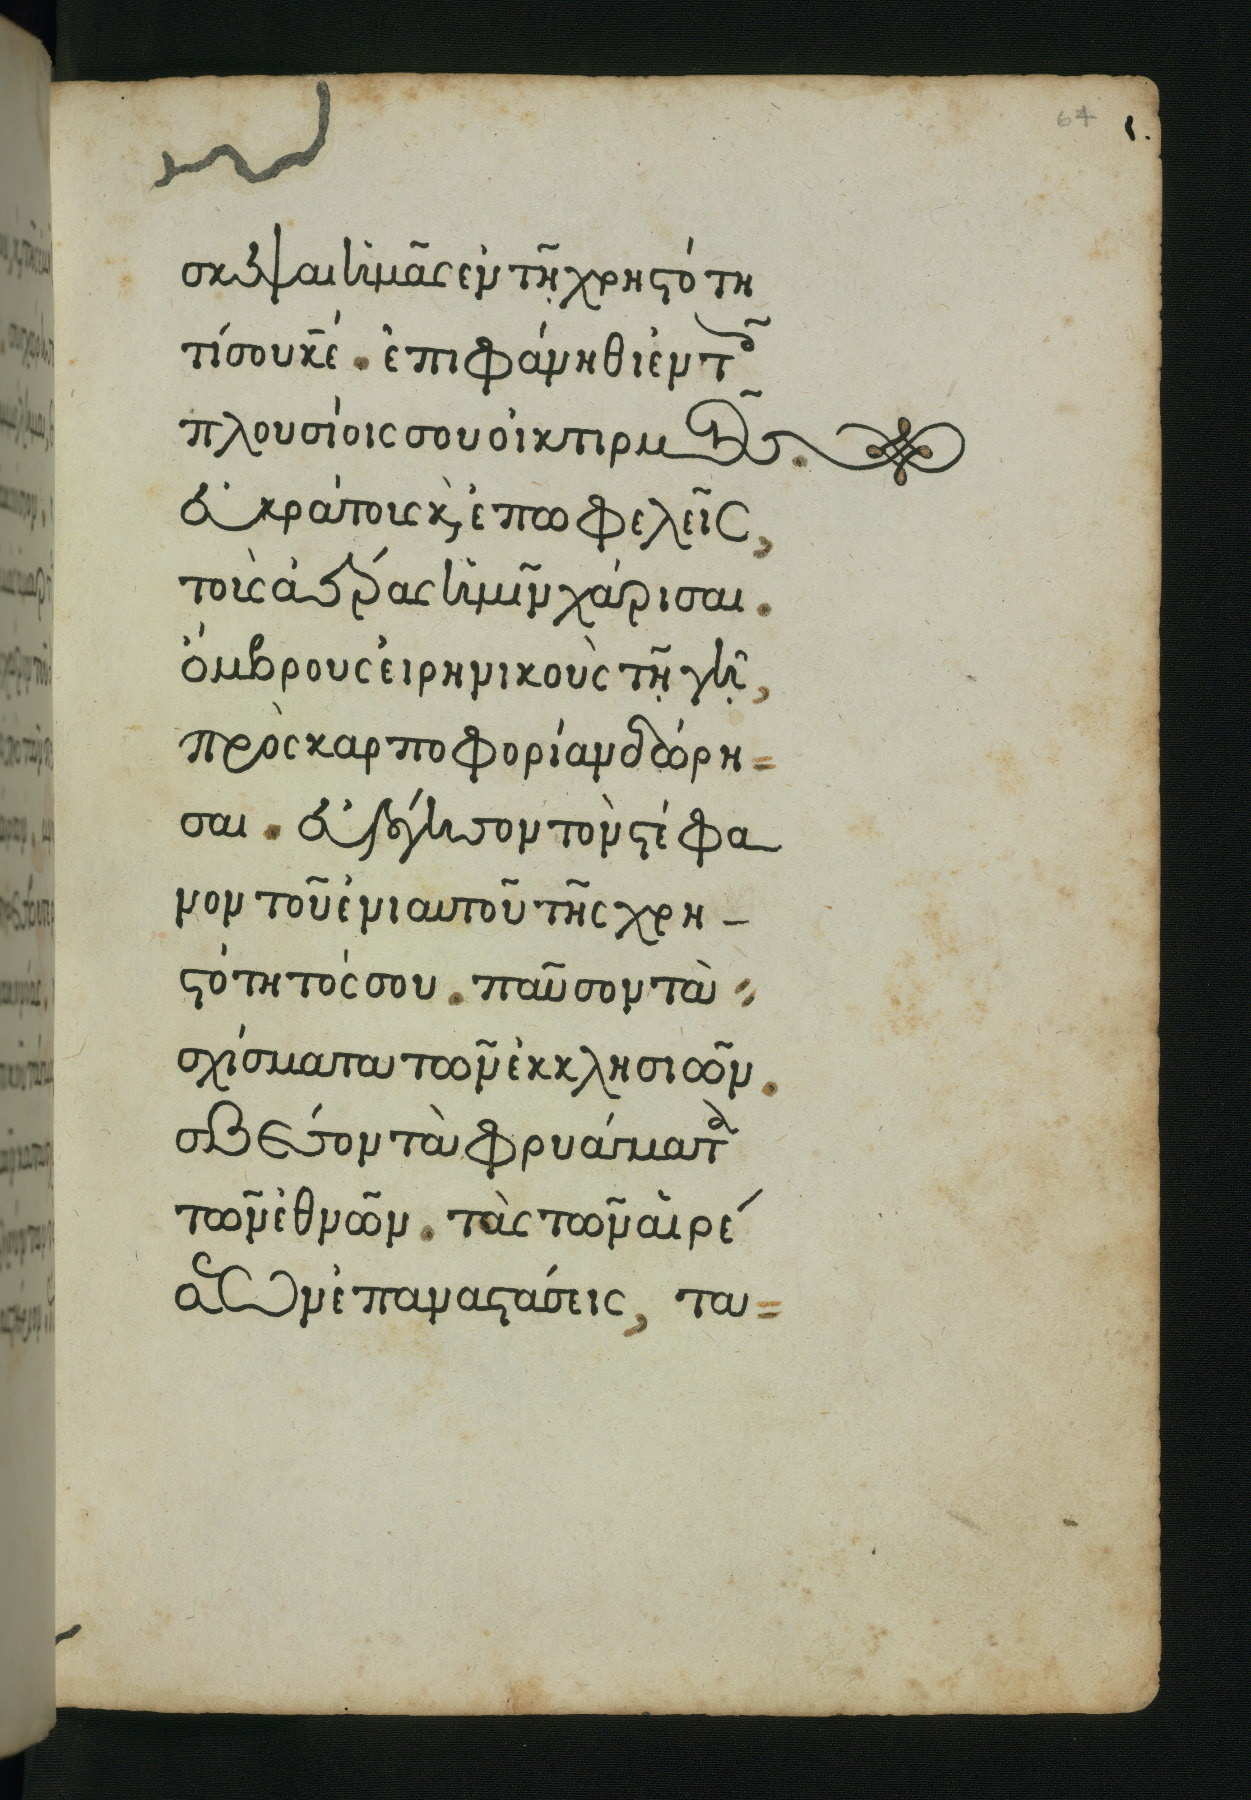 64
σκεψαι ἡμᾶς ἐν τῆ χρηστότη
τί σου κε̄. ἐπιφάνηθι ἐν τοῖς
πλουσίοις σου οἰκτιρμοῖς.
εὐκράτοις κ̀ ἐπωφελεῖς,
τοὺς ἀέρας ἡμῖν χάρισαι.
ὄμβρους εἰρηνικοὺς τῆ γῆ,
πρὸς καρποφορίαν δώρη=
σαι. εὐλόγησον τὸν στέφα
νον τοῦ ἐνιαυτοῦ τῆς χρη-
στότητός σου. παῦσον τὰ
σχίσματα τῶν ἐκκλησιῶν.
σβέσον τὰ φρυάγματα
τῶν ἐθνῶν. τὰς τῶν αἱρέ
σεων ἐπαναστάσεις, τα=